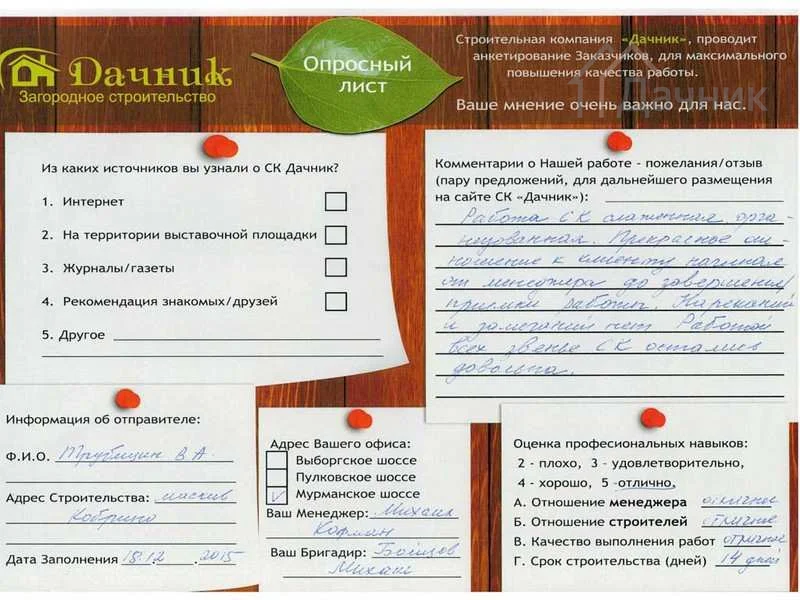 Дачник
Загородное строительство
Опросный
лист
Строительная компания «Дачник», проводит
анкетирование Заказчиков, для максимального
повышения качества работы.
Ваше мнение очень важно для нас.
Дачник
Из каких источников вы узнали о СК Дачник?
1. Интернет
2. На территории выставочной площадки
3. Журналы/газеты
4. Рекомендация знакомых/друзей
5. Другое
Комментарии о Нашей работе - пожелания/отзыв
(пару предложений, для дальнейшего размещения
на сайте СК «Дачник»):
Работа СК слаженная, орга-
низованная. Прекрасное от-
ношение к клиенту начиная
от менеджера до завершения
приемки работы. Нареканий
и замечаний нет. Работой
всех звенье СК остались
довольна.
Информация об отправителе:
Ф.И.О. В.А.
Адрес Строительства: массив
Кобрино
Дата Заполнения 15.12. 2015
Адрес Вашего офиса:
Выборгское шоссе
Пулковское шоссе
Мурманское шоссе
Ваш Менеджер: Михаил
Кофман
Ваш Бригадир:
Михаил
Оценка профессиональных навыков:
2 - плохо, 3 - удовлетворительно,
4 - хорошо, 5 -отлично,
А. Отношение менеджера отличное
Б. Отношение строителей отличное
В. Качество выполнения работ отличное
Г. Срок строительства (дней) 14 дней